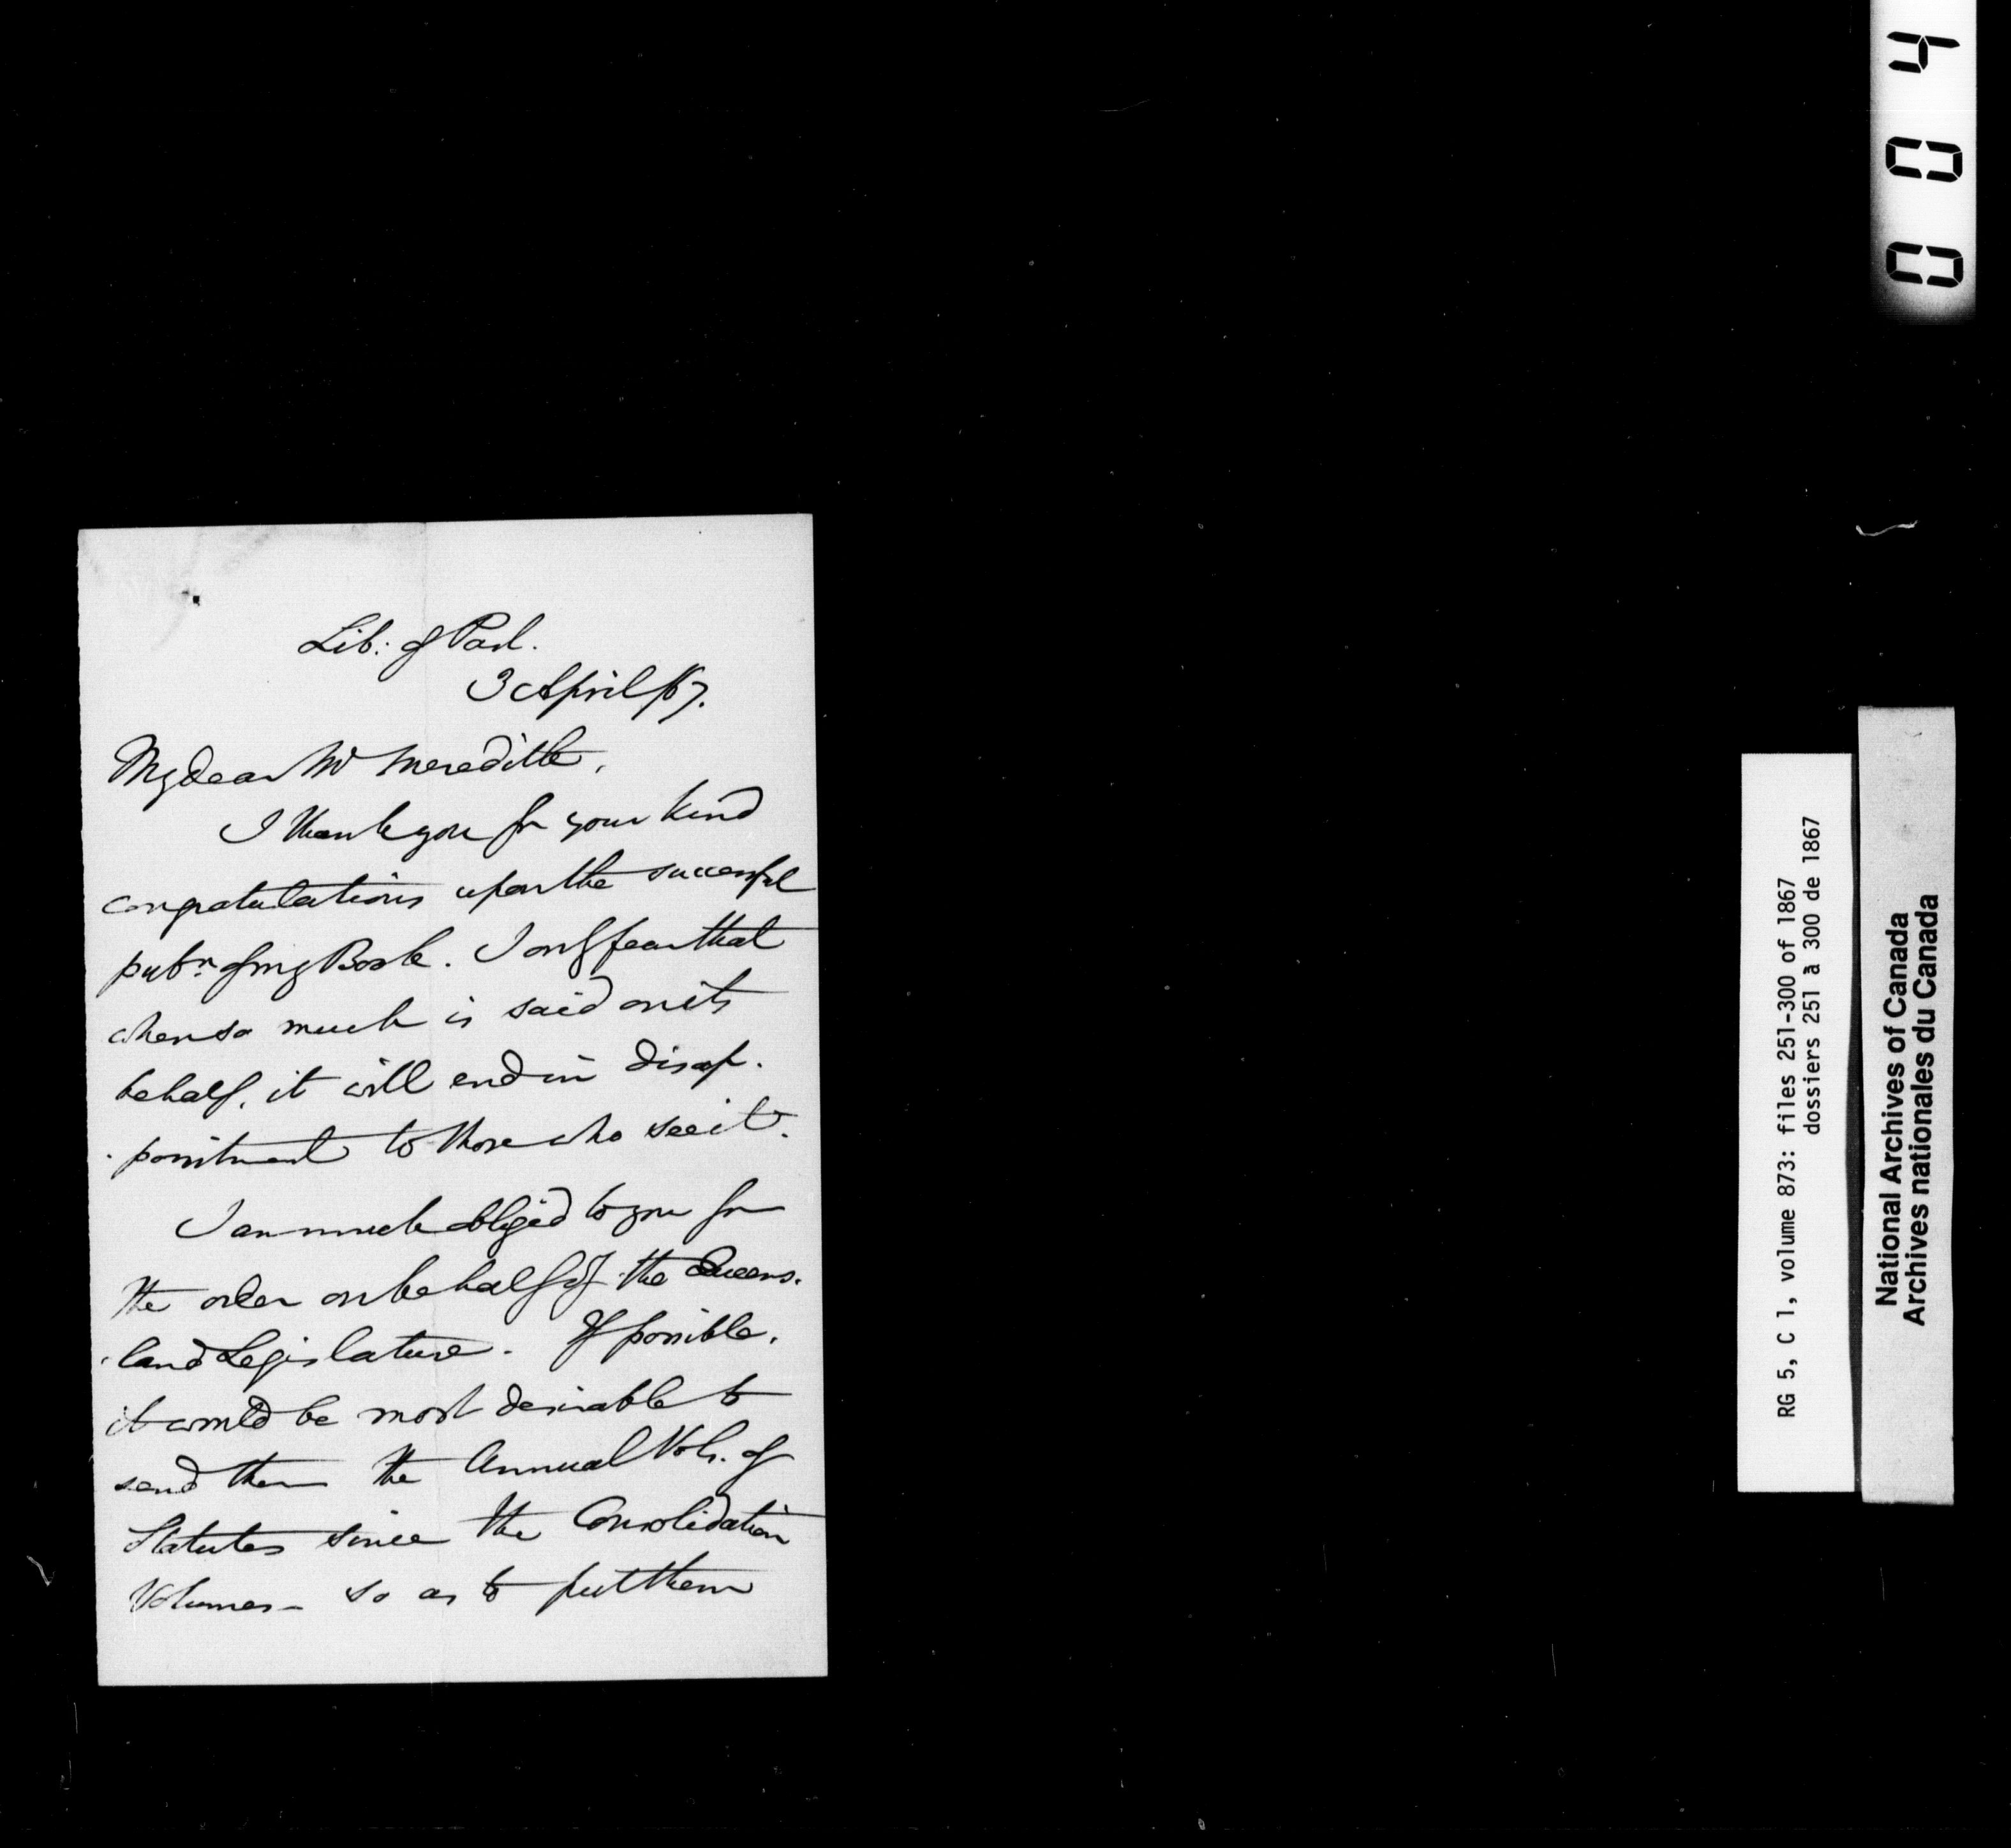 Lib: of Parl.
3 April /67.
My dear Mr Meredith,
I thank you for your kind
congratulations upon the successful
pubn. of my Book. I only fear that
when so much is said on its
behalf, it will end in disap-
-pointment to those who see it.
I am much obliged to you for
the order on behalf of the Queens-
-land Legislature. If possible,
it would be most desirable to
send them the Annual Vols. of
Statutes since the Consolidation
Volumes - so as to put them
004
RG 5, C 1, volume 873: files 251-300 of 1867
dossiers 251 à 300 de 1867
National Archives of Canada
Archives nationales du Canada